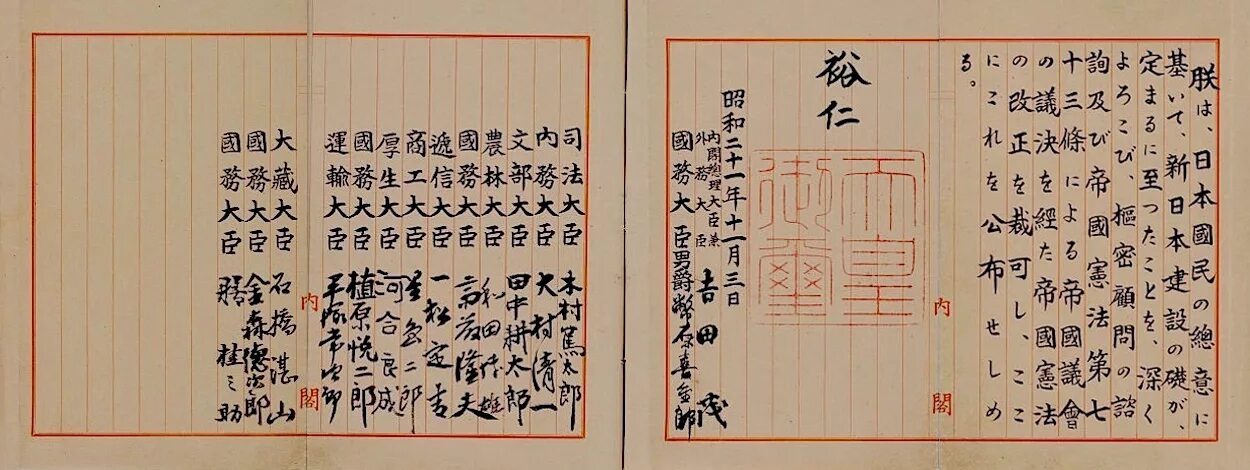 朕は、日本國民の總意に
基いて、新日本建設の礎が、
定まるに至つたことを、深く
よろこび、樞密顧問の諮
詢及び帝國憲法第七
十三條による帝國議會
の議決を経た帝國憲法
の改正を裁可し、ここ
にこれを公布せしめ
る。
內閣
裕仁
天皇
御璽
昭和二十一年十一月三日
內閣總理大臣兼
外務大臣 吉田茂
國務大臣男爵幣原喜重郎
司法大臣 木村篤太郎
內務大臣 大村清一
文部大臣 田中耕太郎
農林大臣 和田博雄
國務大臣 斎藤隆夫
遞信大臣 一松定吉
商工大臣 星島二郎
厚生大臣 河合良成
國務大臣 植原悦二郎
運輸大臣 平塚常次郎
內閣
大藏大臣 石橋湛山
國務大臣 金森德次郎
國務大臣 膳桂之助